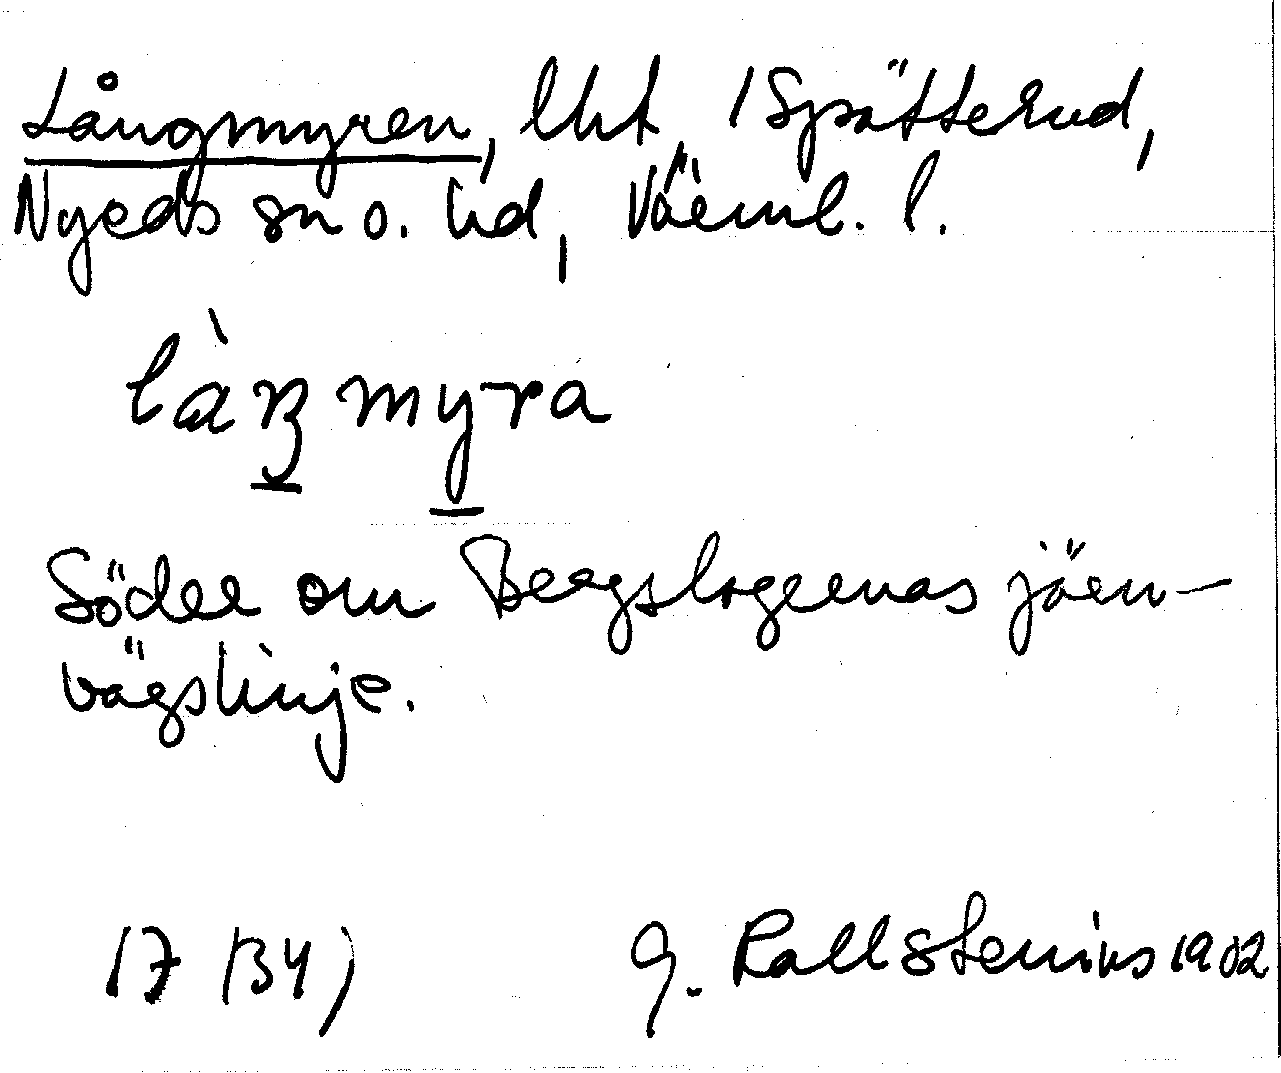 Långmyren, lht, i Spätterud,
Nyeds sn o. hd, Värml. l.
làŋmyra
Söder om Bergslagernas järn-
vägslinje.
17 (34)
G. Kallstenius 1902